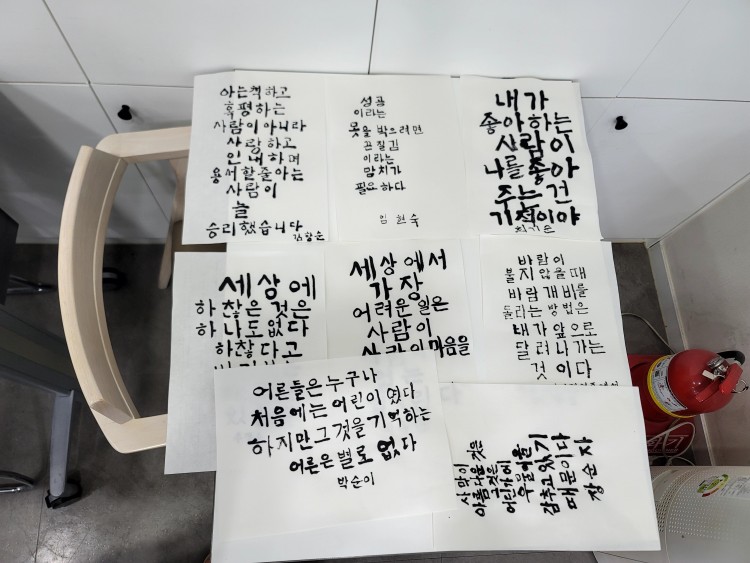 아는척 하고
혹평하는
사람이 아니라
사랑하고
인내하며
용서할줄아는
사람이
늘
승리했습니다
김향순
성공
이라는
못을 박으려면
끈질김
이라는
망치가
필요하다
임현숙
내가
좋아하는
사람이
나를 좋아
주는 건
기적이야
세상에
하찮은 것은
하나도 없다
하찮다고
세상에서
가장
어려운 일은
사람이
사람의 마음을
바람이
불지 않을 때
바람개비를
돌리는 방법은
내가 앞으로
달려나가는
것이다
어른들은 누구나
처음에는 어린이였다
하지만 그것을 기억하는
어른은 별로 없다
박순이
사막이
아름다운 것은
그것은
어딘가에
우물을
감추고 있기
때문이다
장순자